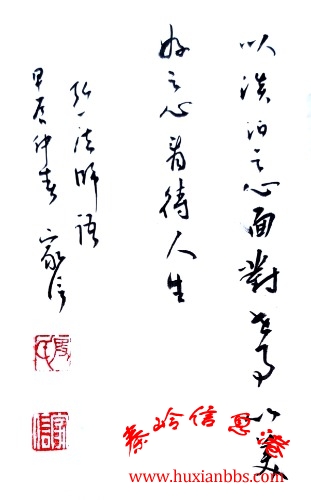 以淡泊之心面對世事以美
好之心看待人生
弘一法師語
甲辰仲春家信
秦岭信息港
www.huxianbbs.com